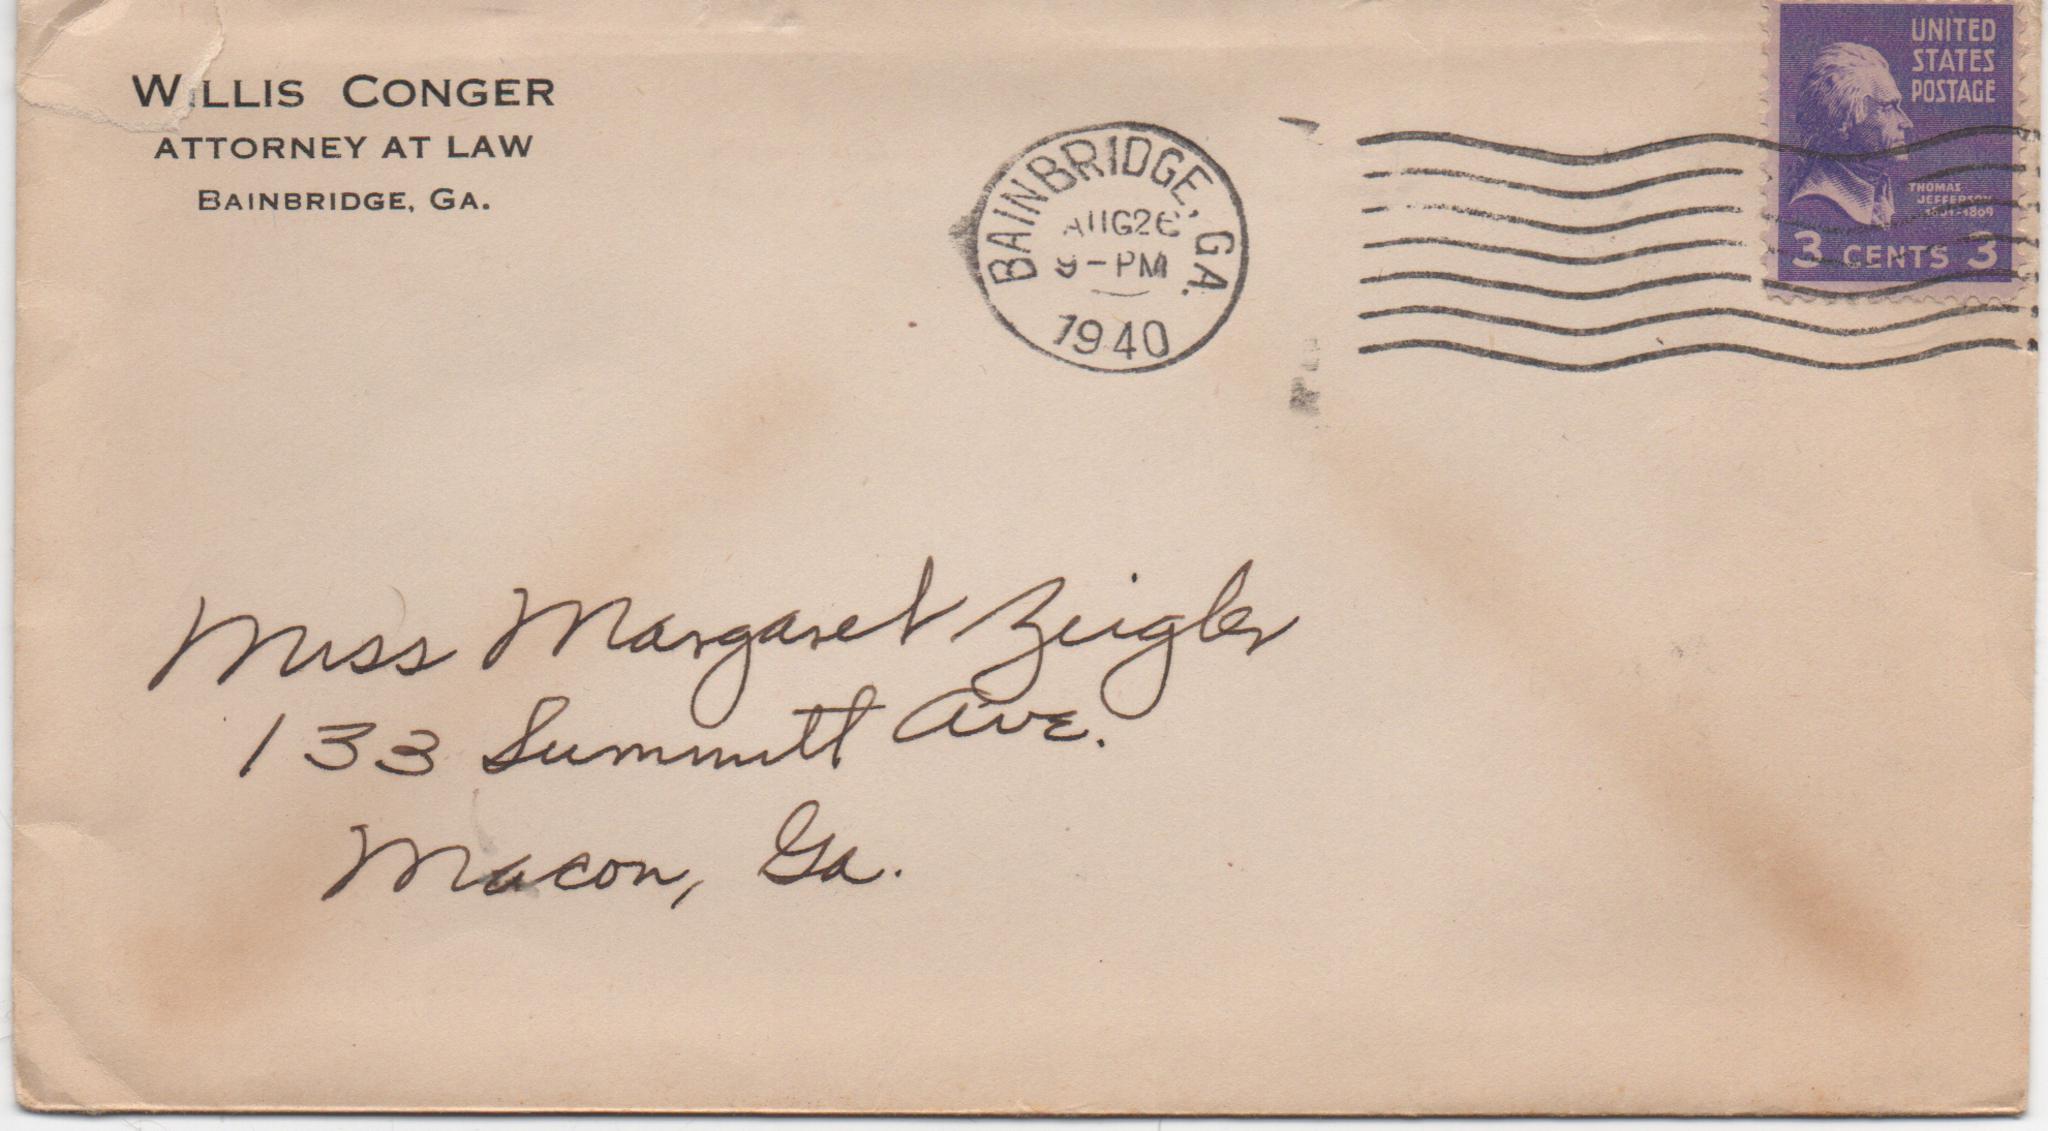 WILLIS CONGER
ATTORNEY AT LAW
BAINBRIDGE, GA.
BAINBRIDGE, GA.
AUG26
9-PM
1940
UNITED
STATES
POSTAGE
THOMAS
JEFFERSON
1801-1809
3 CENTS 3
Miss Margaret Zeigler
133 Summitt Ave.
Macon, Ga.